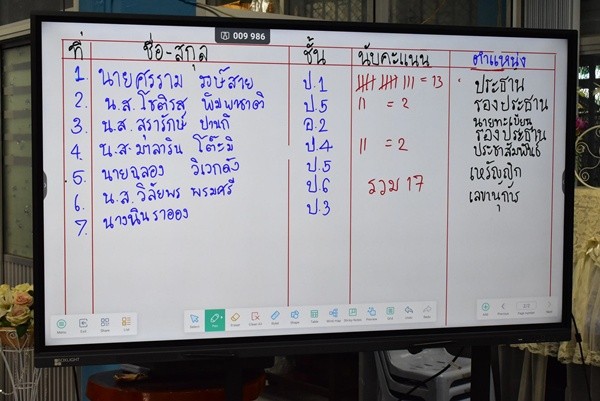 009 986
ที่ ชื่อ-สกุล ชั้น นับคะแนน ตำแหน่ง
1. นายศรราม วงษ์สาย ป.1 = 13 ประธาน
2. น.ส. โชติรส พิมพาชาติ ป.5 11 = 2 รองประธาน
3. น.ส. สุรารักษ์ ปานกี อ.2 นายทะเบียน
รองประธาน
4. น.ส. มาลาริน โต๊ะมิ ป.4 11 = 2 ประชาสัมพันธ์
5. นายฉลอง วิเวกดัง ป.5 เหรัญญิก
6. น.ส. วิลัยพร พรมศรี ป.6 รวม 17 เลขานุการ
7. นางนิน ราออง ป.3